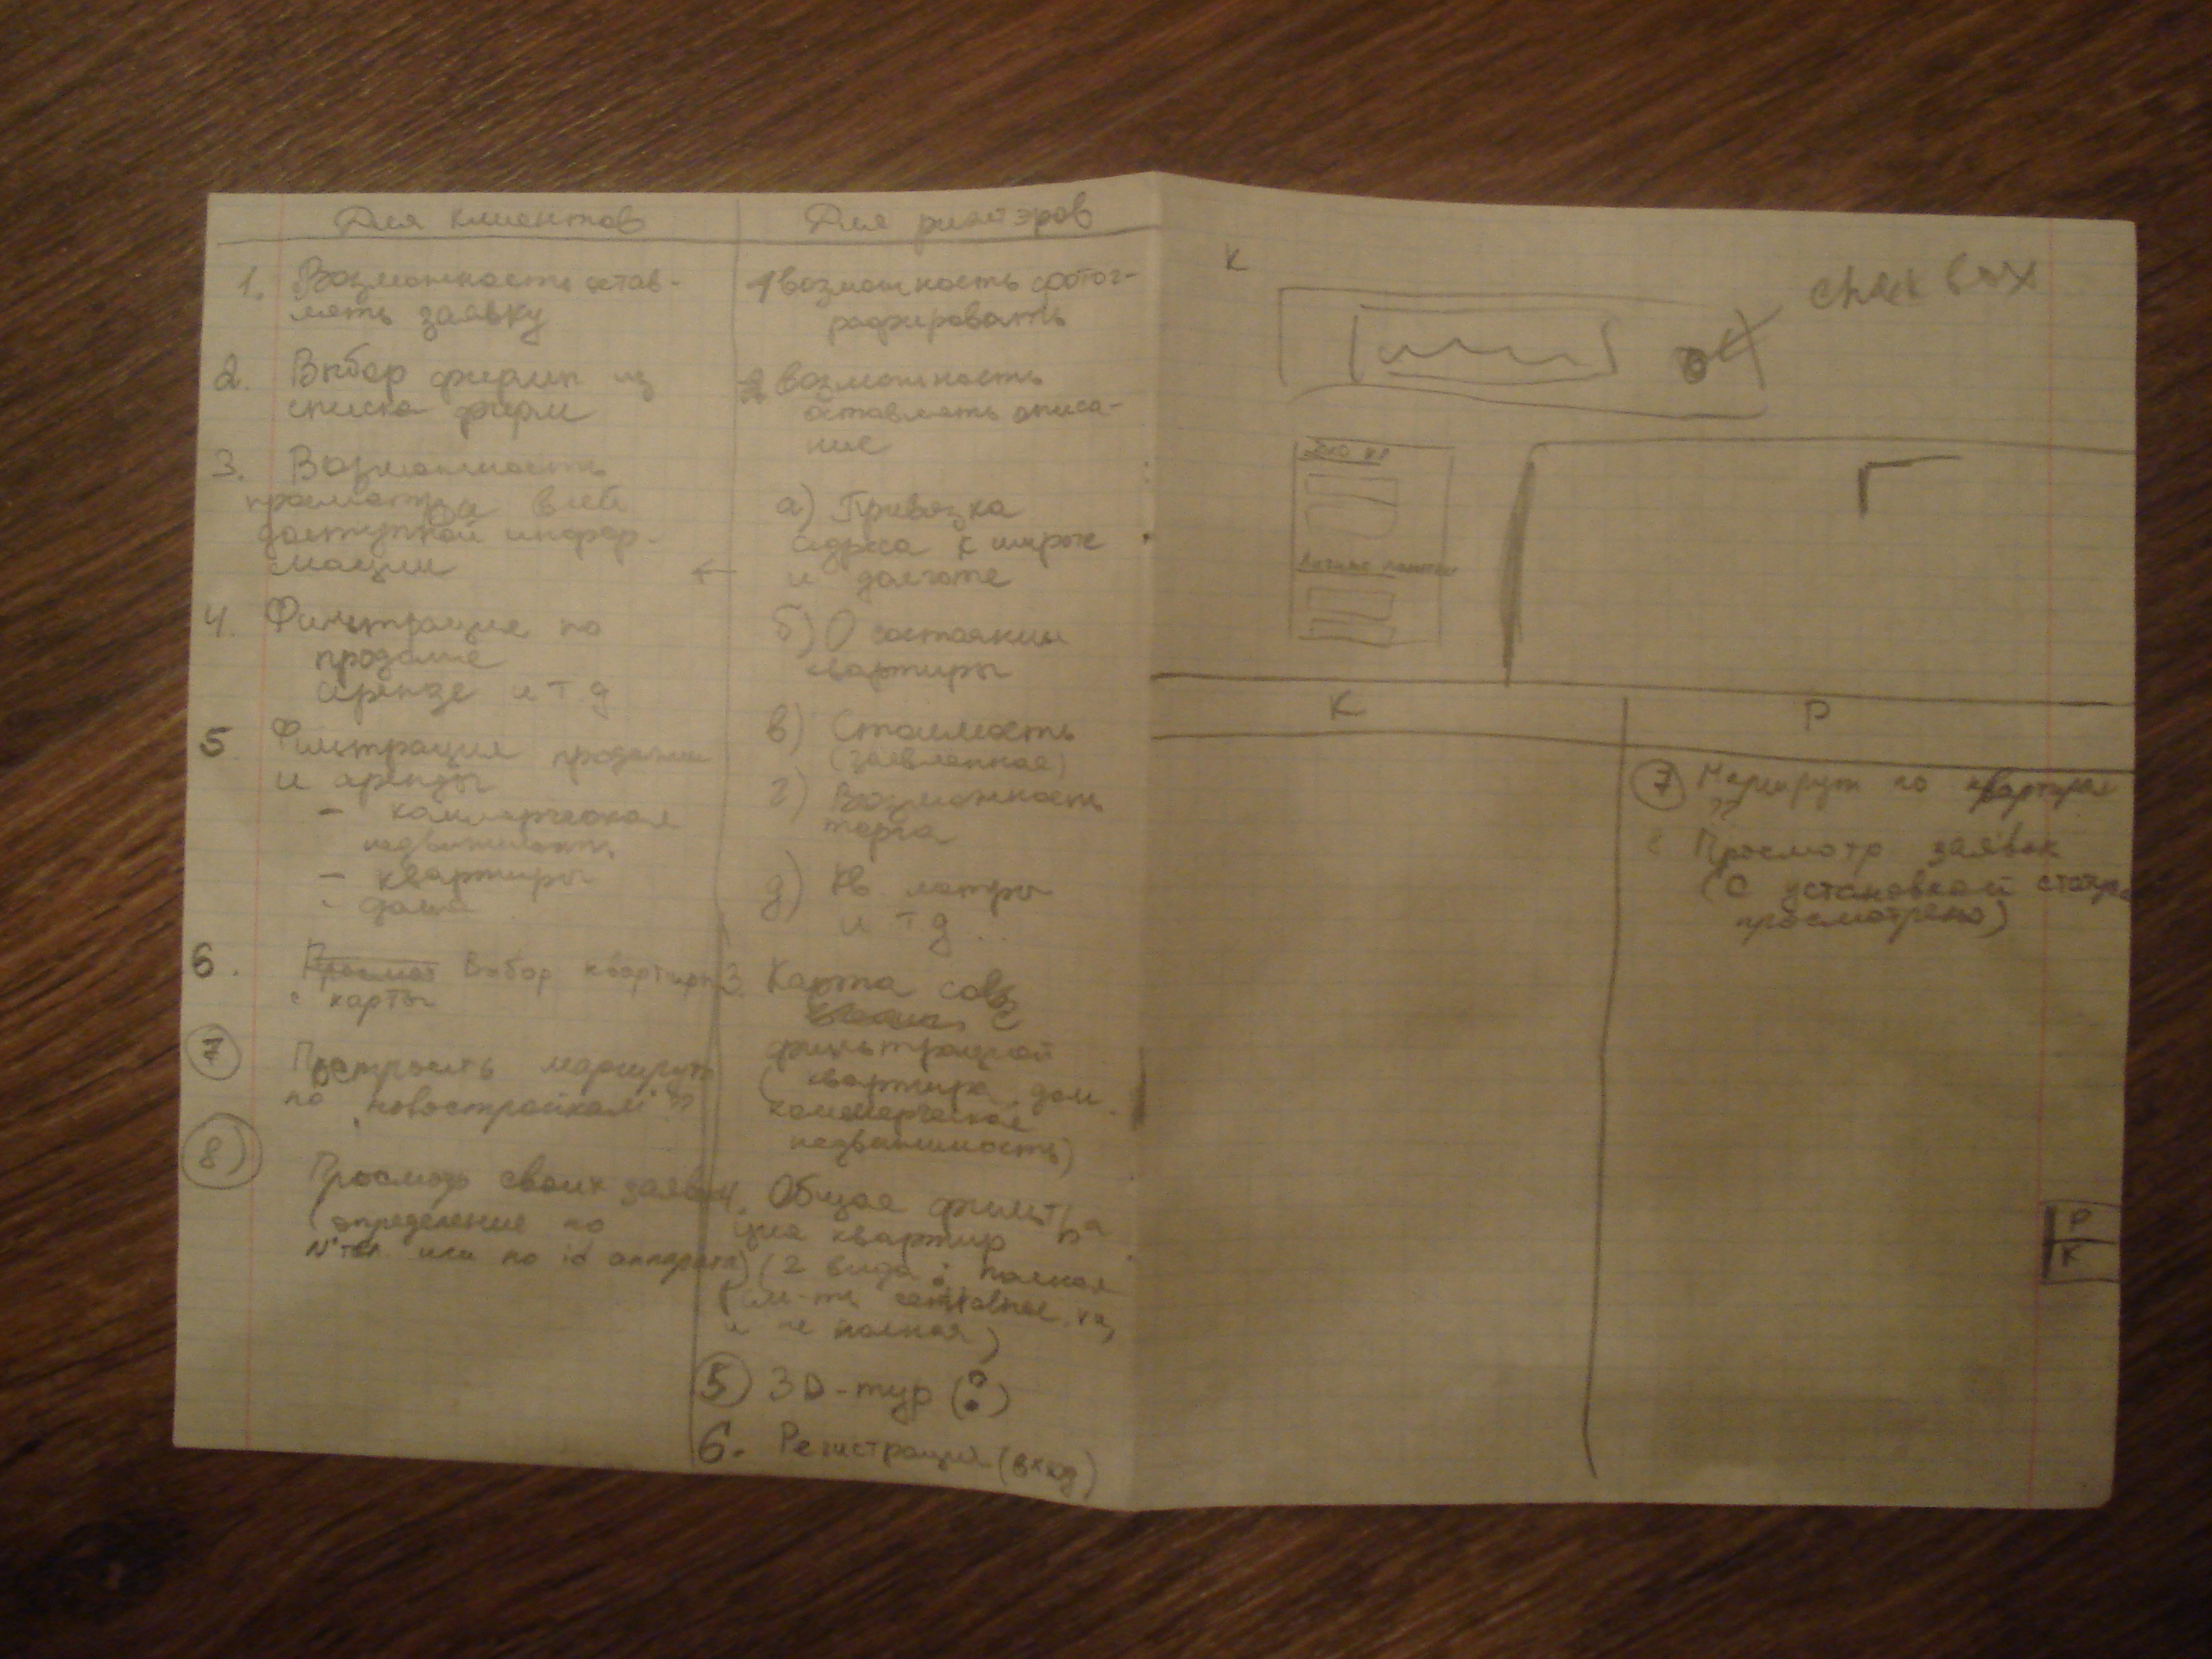 Для клиентов
1. Возможность остав-
лять заявку
2. Выбор фирмы из
списка фирм
3. Возможность
просмотра всей
доступной инфор-
мации
4. Фильтрация по
продаже
аренде и т д
5 Фильтрация продажи
и аренды
- коммерческая
недвижимость
- квартиры
- дома
6. Выбор квартиры
с карты
7 Построить маршрут
по "новостройкам"
8 Просмотр своих заявок
(определение по
N°тел или по id аппарата)
Для риэлтэров
1 возможность фотог-
рафировать
2 возможность
оставлять описа-
ние
а) Привязка
адреса к широте
и долготе
б) О состоянии
квартиры
в) Стоимость
(заявленная)
г) Возможность
торга
д) Кв. метры
и т д ..
3. Карта
с
фильтрацией
(квартира, дом,
коммерческая
недвижимость)
4. Общая фильтра
ция квартир
(2 вида: полная
и не полная)
5 3D-тур
6. Регистрация (вход)
К
check box
К
Р
7 Маршрут по квартире
8 Просмотр заявок
(с установкой статуса
просмотрено)
Р
К